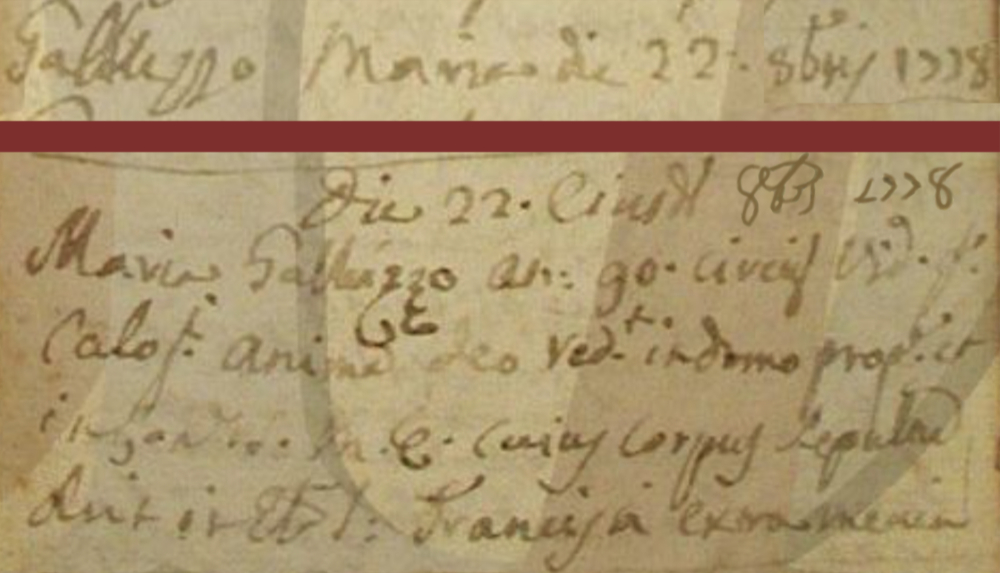 Galluzzo Maria die 22. 8bris 1778
Die 22. Eiusd 8bris 1778
Maria Galluzzo an: 90. circit Vid.
Calos. anima deo red.t in domo prop.
in M. E. Cuius Corpus sepultu
fuit in S. Francisci extra menia